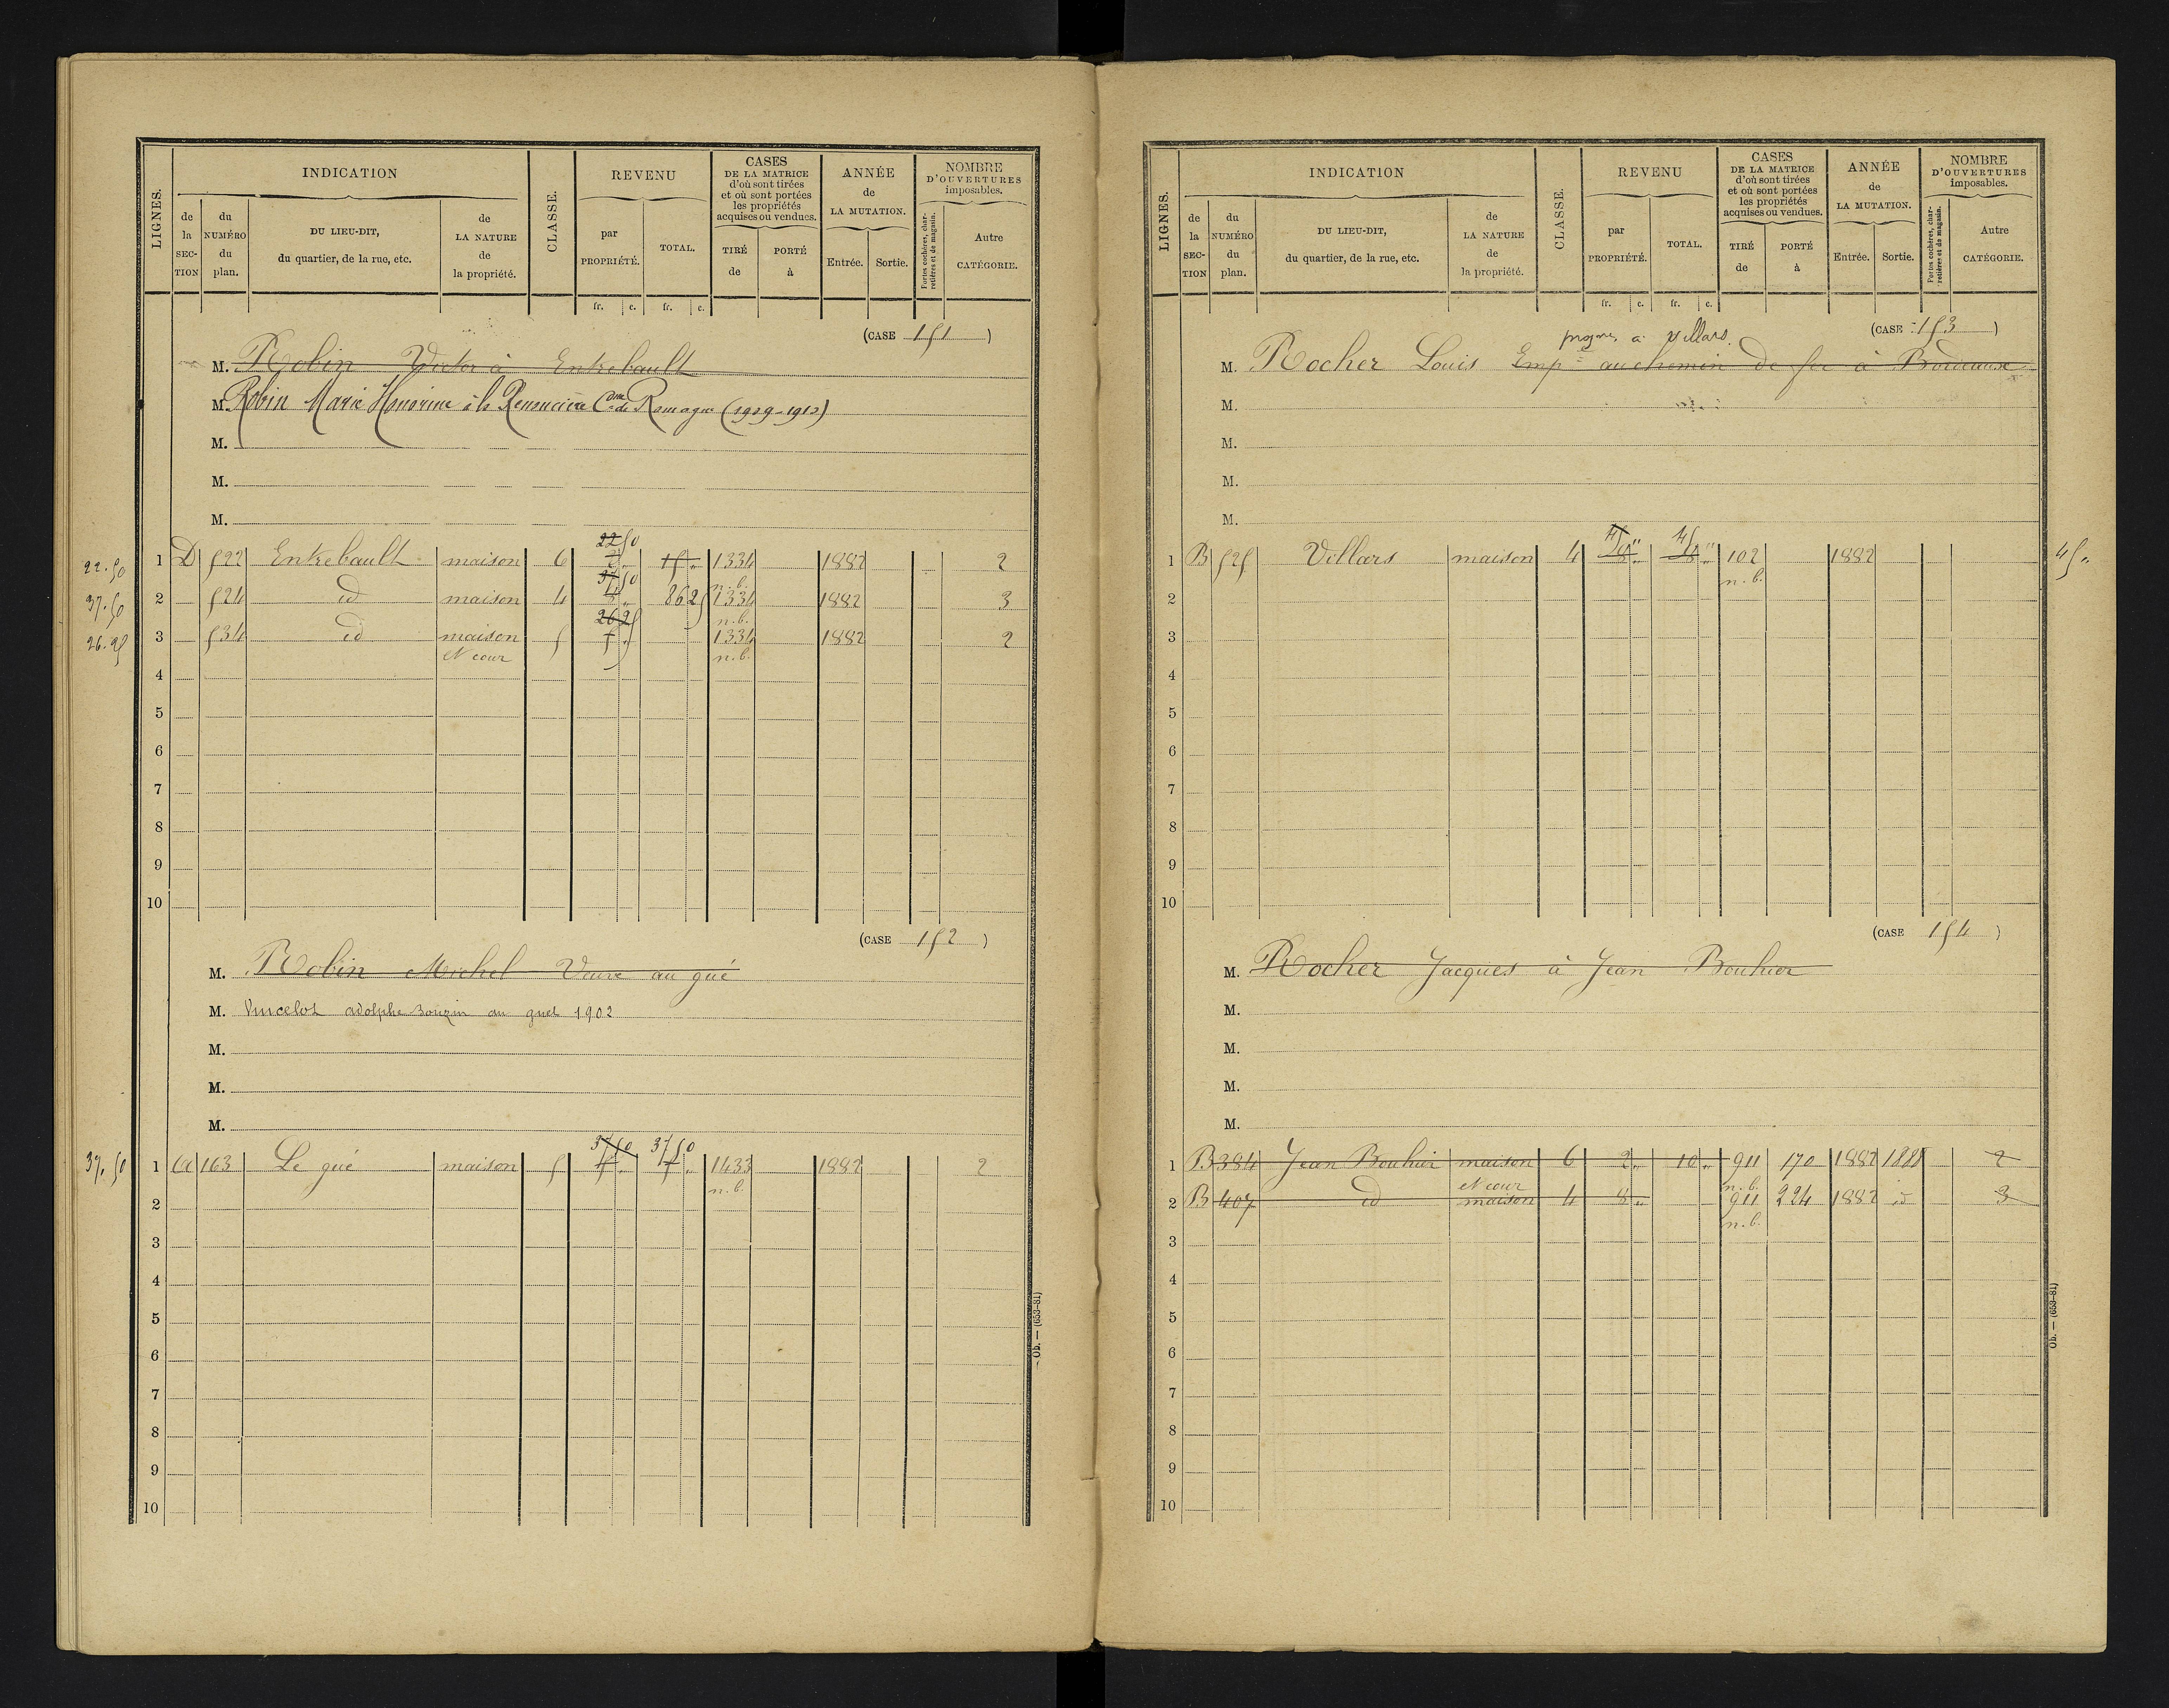 LIGNES.
INDICATION
de la SECTION
du NUMÉRO du plan.
DU LIEU-DIT, du quartier, de la rue, etc.
de LA NATURE de la propriété.
CLASSE.
REVENU
par PROPRIÉTÉ.
TOTAL.
CASES DE LA MATRICE d'où sont tirées et où sont portées les propriétés acquises ou vendues.
TIRÉ de
PORTÉ à
ANNÉE de LA MUTATION.
Entrée.
Sortie.
NOMBRE D'OUVERTURES imposables.
Portes cochères, charretières et de magasin.
Autre CATÉGORIE.
fr. c. fr. c.
(CASE 151)
M. Robin Victor à Entrebault
M. Robin Marie Honorine à la Cne de Romagne (1909-1912)
M.
M.
M.
22.50 1 D 522 Entrebault maison 6 22 50 2 " 15 " 1334 n.b. 1882 2
37.50 2 524 id maison 4 37 50 8 " 86 25 1334 n.b. 1882 3
26.25 3 534 id maison et cour 5 26 25 5 " 1334 n.b. 1882 2
4
5
6
7
8
9
10
(CASE 152)
M. Robin Michel Veuve au gué
M. Vincelot adolphe Bouzin au guet 1902
M.
M.
M.
37.50 1 A 163 Le gué maison 5 37 50 37 50 1433 n.b. 1882 2
2
3
4
5
6
7
8
9
10
Ob. — (653-81)
LIGNES.
INDICATION
de la SECTION
du NUMÉRO du plan.
DU LIEU-DIT, du quartier, de la rue, etc.
de LA NATURE de la propriété.
CLASSE.
REVENU
par PROPRIÉTÉ.
TOTAL.
CASES DE LA MATRICE d'où sont tirées et où sont portées les propriétés acquises ou vendues.
TIRÉ de
PORTÉ à
ANNÉE de LA MUTATION.
Entrée.
Sortie.
NOMBRE D'OUVERTURES imposables.
Portes cochères, charretières et de magasin.
Autre CATÉGORIE.
fr. c. fr. c.
(CASE 153)
à Villars.
M. Rocher Louis Empé au chemin de fer à Bordeaux
M.
M.
M.
M.
1 B 525 Villars maison 4 45 " 8 " 45 " 8 " 102 n.b. 1882 45 "
2
3
4
5
6
7
8
9
10
(CASE 154)
M. Rocher Jacques à Jean Bouhier
M.
M.
M.
M.
1 B 384 Jean Bouhier maison et cour 6 2 " 10 " 911 n.b. 170 1882 1888 2
2 B 407 id maison 4 8 " 911 n.b. 224 1882 id 3
3
4
5
6
7
8
9
10
Ob. — (653-81)